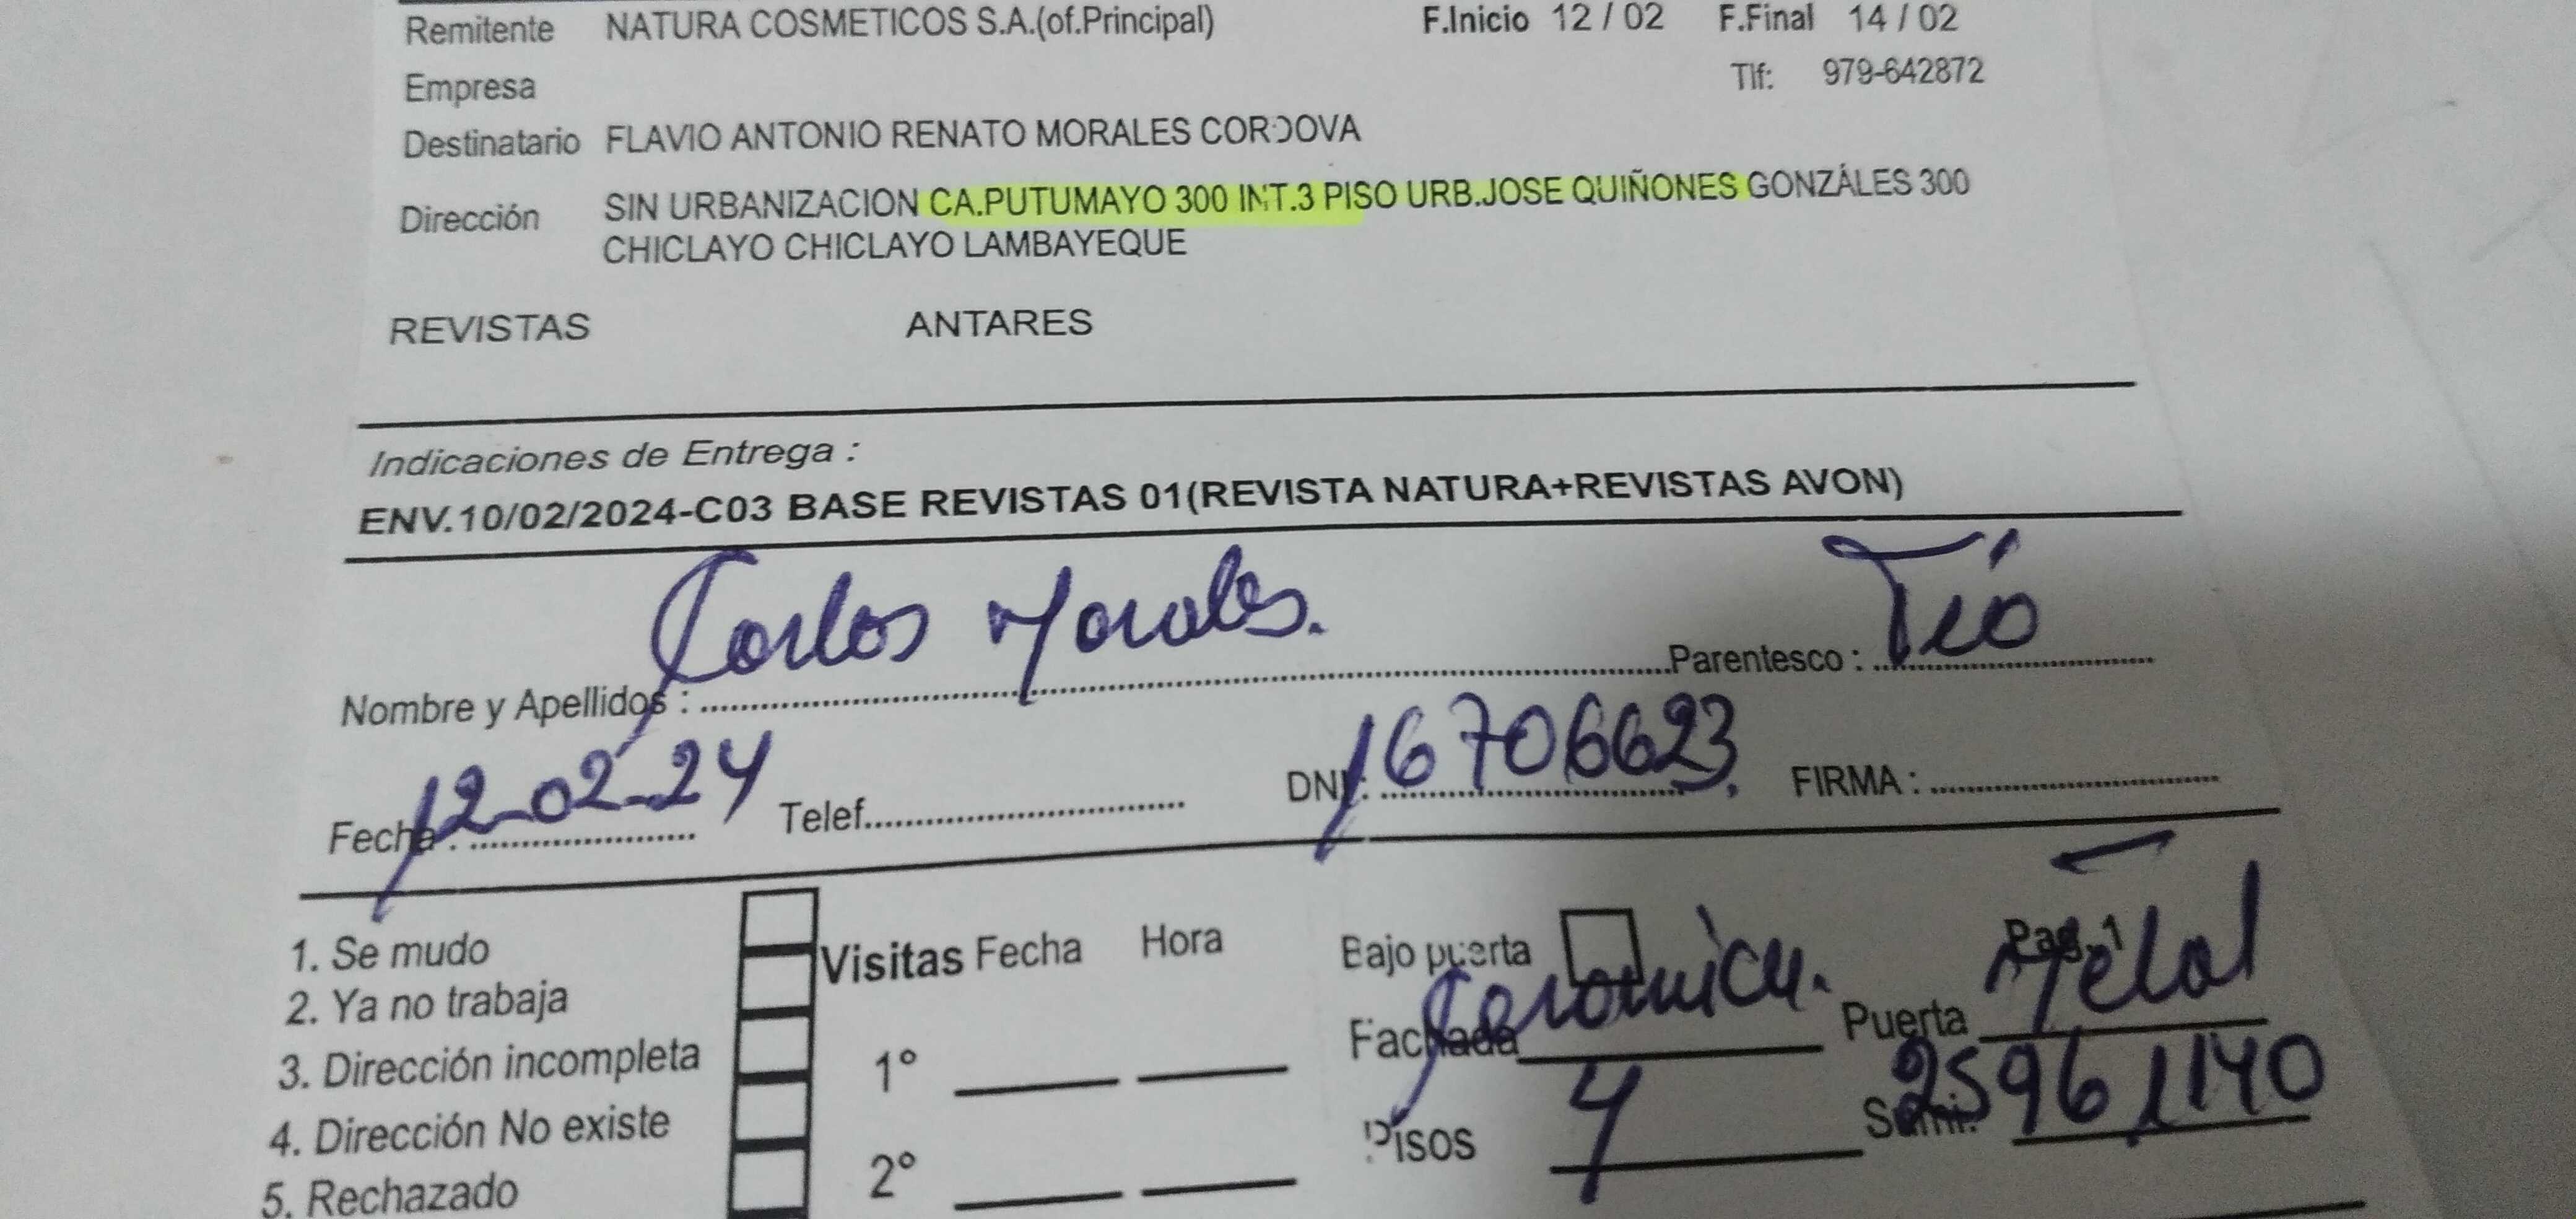 Remitente NATURA COSMETICOS S.A.(of.Principal) F.Inicio 12 / 02 F.Final 14 / 02
Empresa Tlf: 979-642872
Destinatario FLAVIO ANTONIO RENATO MORALES CORDOVA
Dirección SIN URBANIZACION CA.PUTUMAYO 300 INT.3 PISO URB.JOSE QUIÑONES GONZÁLES 300
CHICLAYO CHICLAYO LAMBAYEQUE
REVISTAS ANTARES
Indicaciones de Entrega :
ENV.10/02/2024-C03 BASE REVISTAS 01(REVISTA NATURA+REVISTAS AVON)
Nombre y Apellidos : Carlos Morales. Parentesco : Tío
Fecha : 12-02-24 Telef. DNI: 16706623 FIRMA :
Pag. 1
1. Se mudo
2. Ya no trabaja
3. Dirección incompleta
4. Dirección No existe
5. Rechazado
Visitas Fecha Hora
1°
2°
Bajo puerta
Fachada Ceramica. Puerta Metal
Pisos 4 Sumi. 25961140